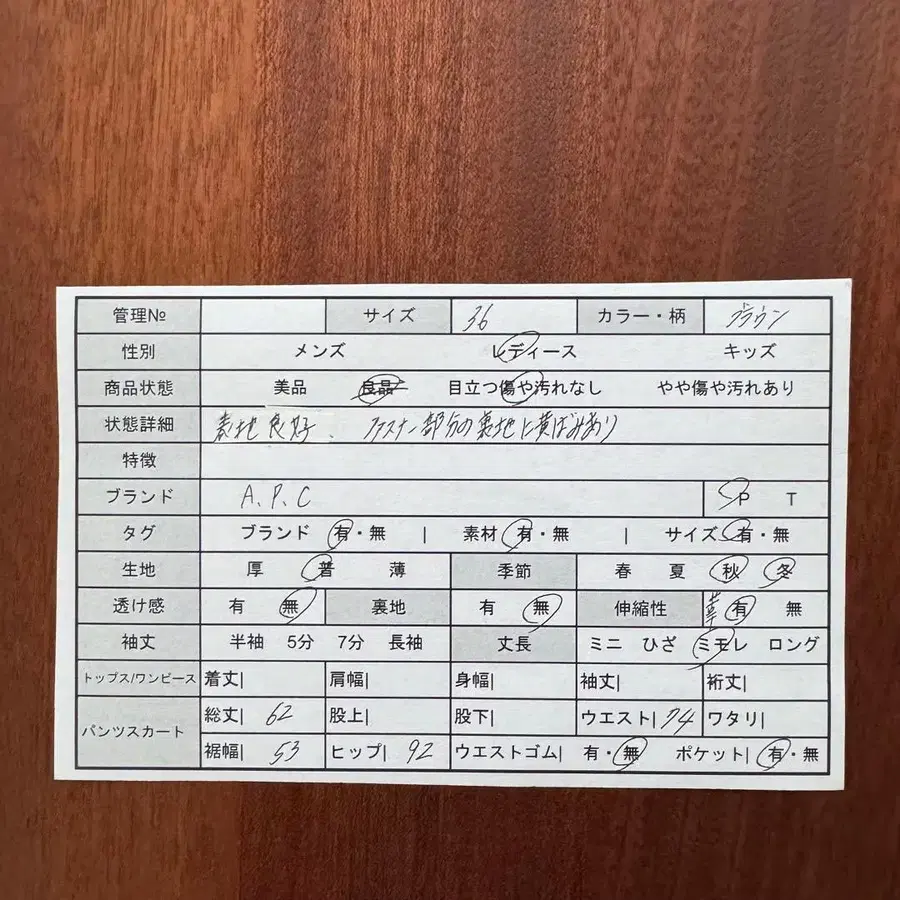 管理№ サイズ 36 カラー・柄 ブラウン
性別 メンズ レディース キッズ
商品状態 美品 良品 目立つ傷や汚れなし やや傷や汚れあり
状態詳細 表地良好、ファスナー部分の裏地に黄ばみあり
特徴
ブランド A.P.C P T
タグ ブランド 有・無 | 素材 有・無 | サイズ 有・無
生地 厚 普 薄 季節 春 夏 秋 冬
透け感 有 無 裏地 有 無 伸縮性 有 無
袖丈 半袖 5分 7分 長袖 丈長 ミニ ひざ ミモレ ロング
トップス/ワンピース 着丈| 肩幅| 身幅| 袖丈| 裄丈|
パンツスカート 総丈| 62 股上| 股下| ウエスト| 74 ワタリ|
裾幅| 53 ヒップ| 92 ウエストゴム| 有・無 ポケット| 有・無